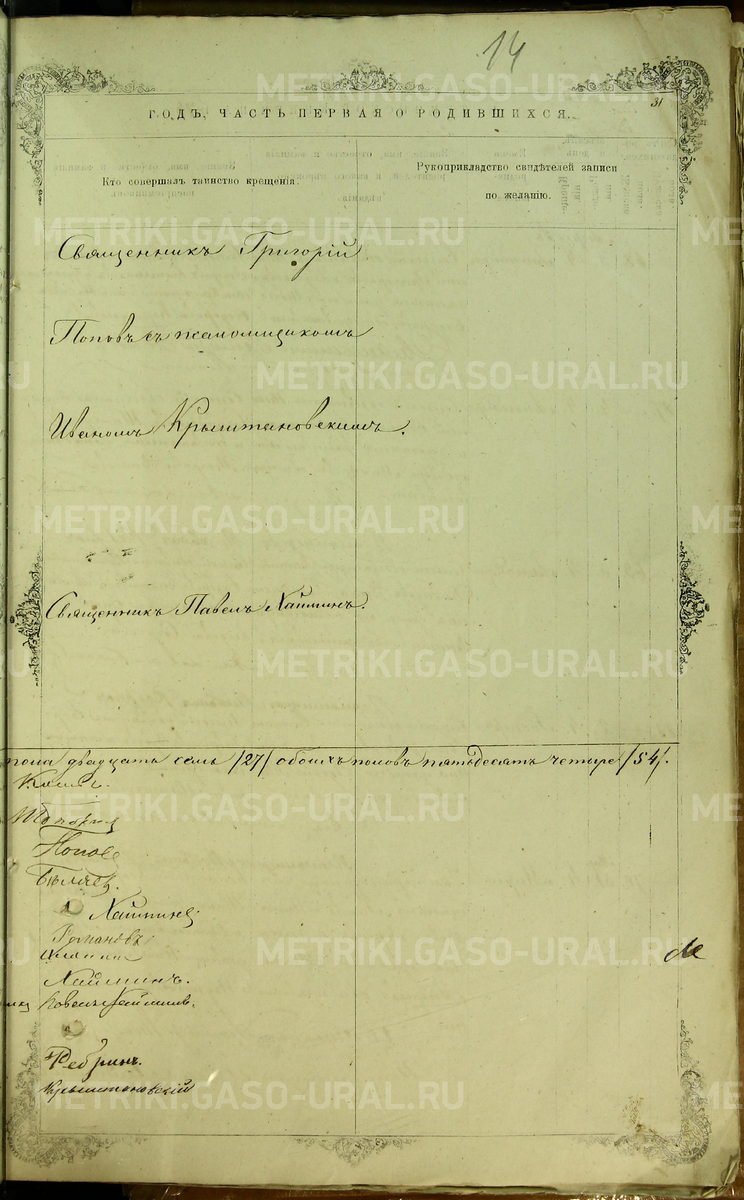 14
31
ГОДЪ, ЧАСТЬ ПЕРВАЯ О РОДИВШИХСЯ.
Кто совершалъ таинство крещенія.
Рукоприкладство свидѣтелей записи
по желанію.
Священникъ Григорій
Поповъ съ псаломщикомъ
Иваномъ Крыштановскимъ.
Священникъ Павелъ Хайминъ.
пола двадцать семь /27/ обоихъ половъ пятьдесятъ четыре /54/.
Топоркъ
Поповъ
Бѣляев.
Хайминъ
Романовъ
Хайминъ.
Павелъ Хайминъ.
Ребринъ.
Крыштановскій
METRIKI.GASO-URAL.RU